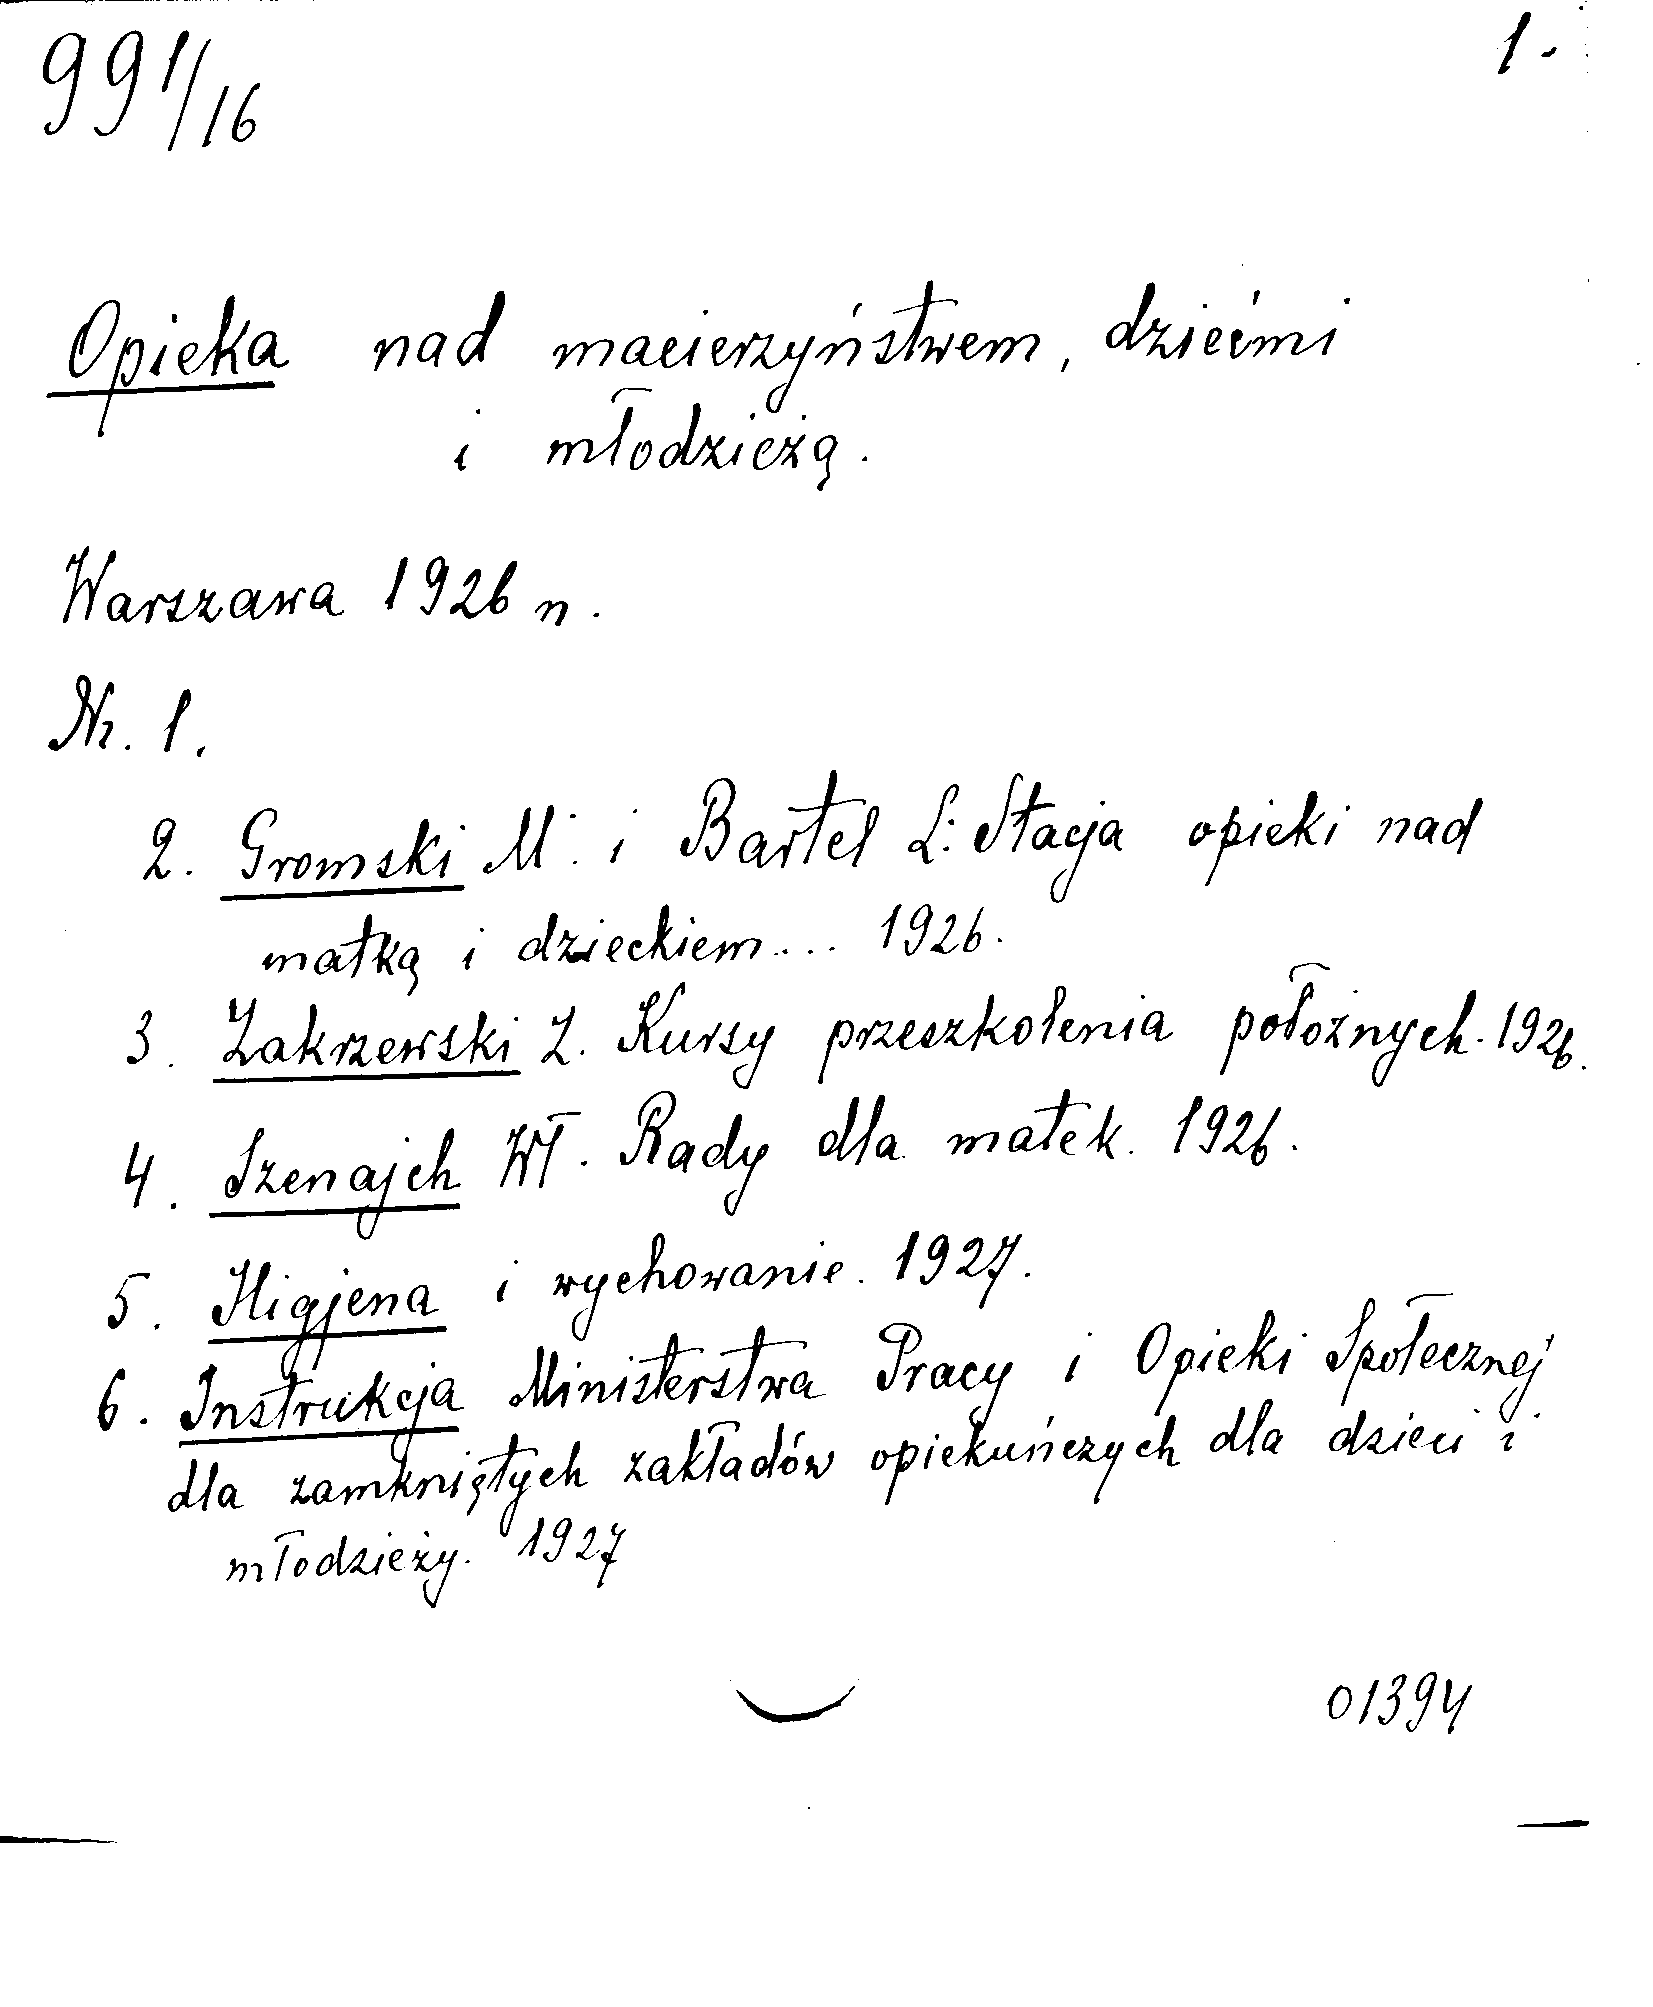 1.
991/16
Opieka nad macierzyństwem, dziećmi
i młodzieżą.
Warszawa 1926 n.
Nr. 1.
2. Gromski M. i Bartel L: Stacja opieki nad
matką i dzieckiem... 1926.
3. Zakrzewski Z. Kursy przeszkolenia położnych. 1926.
4. Szenajch Wł. Rady dla matek. 1926.
5. Higjena i wychowanie. 1927.
6. Instrukcja Ministerstwa Pracy i Opieki Społecznej
dla zamkniętych zakładów opiekuńczych dla dzieci i
młodzieży. 1927
01394